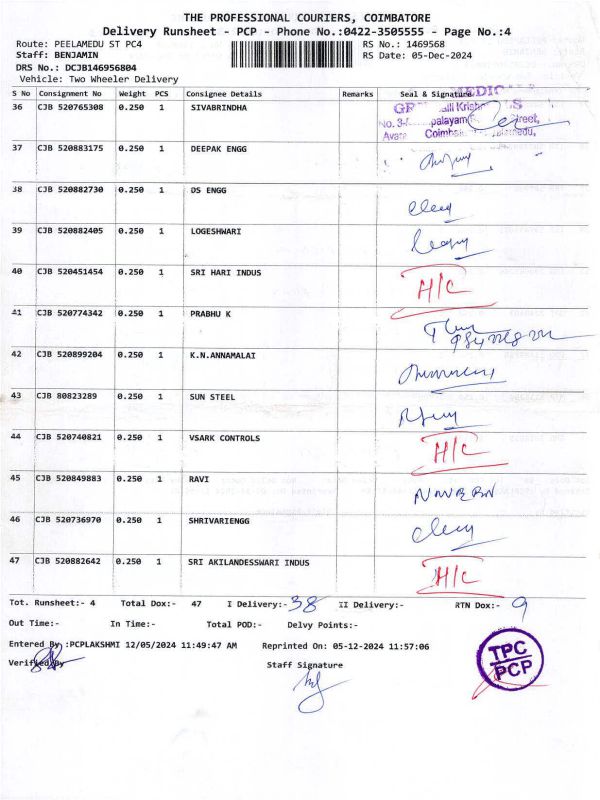 THE PROFESSIONAL COURIERS, COIMBATORE
Delivery Runsheet - PCP - Phone No.:0422-3505555 - Page No.:4
Route: PEELAMEDU ST PC4 RS No.: 1469568
Staff: BENJAMIN RS Date: 05-Dec-2024
DRS No.: DCJB146956804
Vehicle: Two Wheeler Delivery
S No Consignment No Weight PCS Consignee Details Remarks Seal & Signature
36 CJB 520765308 0.250 1 SIVABRINDHA
MEDIC
No. 3- palayam Street,
Avara Coimba
37 CJB 520883175 0.250 1 DEEPAK ENGG
38 CJB 520882730 0.250 1 DS ENGG
39 CJB 520882405 0.250 1 LOGESHWARI
40 CJB 520451454 0.250 1 SRI HARI INDUS H/C
41 CJB 520774342 0.250 1 PRABHU K
42 CJB 520899204 0.250 1 K.N.ANNAMALAI
43 CJB 80823289 0.250 1 SUN STEEL
44 CJB 520740821 0.250 1 VSARK CONTROLS H/C
45 CJB 520849883 0.250 1 RAVI
46 CJB 520736970 0.250 1 SHRIVARIENGG
47 CJB 520882642 0.250 1 SRI AKILANDESSWARI INDUS H/C
Tot. Runsheet:- 4 Total Dox:- 47 I Delivery:- 38 II Delivery:- RTN Dox:- 9
Out Time:- In Time:- Total POD:- Delvy Points:-
Entered By :PCPLAKSHMI 12/05/2024 11:49:47 AM Reprinted On: 05-12-2024 11:57:06
Verified By Staff Signature
TPC
PCP